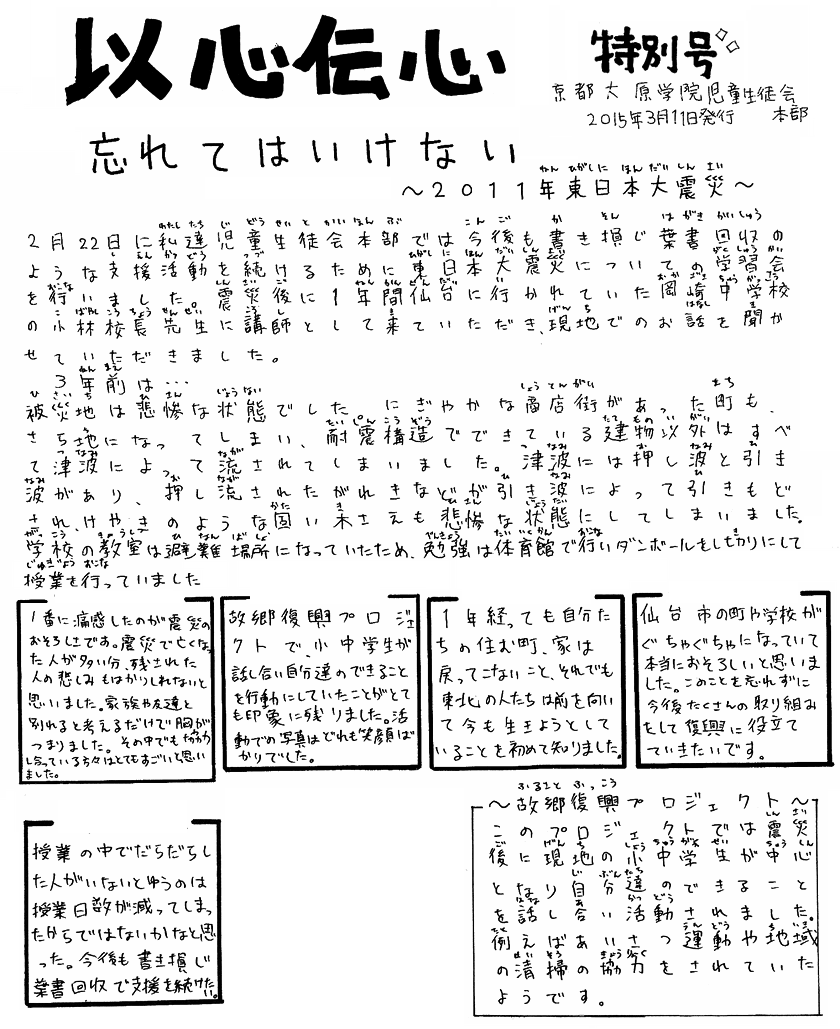 以心伝心
特別号
京都大原学院児童生徒会
2015年3月11日発行 本部
忘れてはいけない
～2011年東日本大震災～
2月22日に私達児童生徒会本部では今後も書き損じ葉書回収の
ような支援活動を続けるために東日本大震災についての学習会
を行いました。震災後に1年間仙台に行かれていた岡崎中学校
の小林校長先生に講師として来ていただき、現地でのお話を聞か
せていただきました。
3年前は…
被災地は悲惨な状態でした。にぎやかな商店街があった町も、
さら地になってしまい、耐震構造でできている建物以外はすべ
て津波によって流されてしまいました。津波には押し波と引き
波があり、押し流されたがれきなどが引き波によって引きもど
され、けやきのような固い木さえも悲惨な状態にしてしまいました。
学校の教室は避難場所になっていたため、勉強は体育館で行いダンボールをしきりにして
授業を行っていました
1番に痛感したのが震災の
おそろしさです。震災で亡くなっ
た人が多い分、残された
人の悲しみもはかりしれないと
思いました。家族や友達と
別れると考えるだけで胸が
つまりました。その中でも協力
し合っている方々はとてもすごいと思い
ました。
故郷復興プロジェ
クトで小中学生が
話し合い自分達のできること
を行動にしていたことがとて
も印象に残りました。活
動での写真はどれも笑顔ば
かりでした。
1年経っても自分た
ちの住む町、家は
戻ってこないこと、それでも
東北の人たちは前を向い
て今も生きようとして
いることを初めて知りました。
仙台市の町や学校が
ぐちゃぐちゃになっていて
本当におそろしいと思いまし
した。このことを忘れずに
今後たくさんの取り組み
をして復興に役立て
ていきたいです。
授業の中でだらだらし
た人がいないとゆうのは
授業日数が減ってしまっ
たからではないかなと思
った。今後も書き損じ
葉書回収で支援を続けたい。
～故郷復興プロジェクト～
このプロジェクトでは震災
後に現地の小中学生が中心
となり自分達のできること
を話し合い活動されました。
例えばあいさつ運動や地域
の清掃の協力をされていた
ようです。